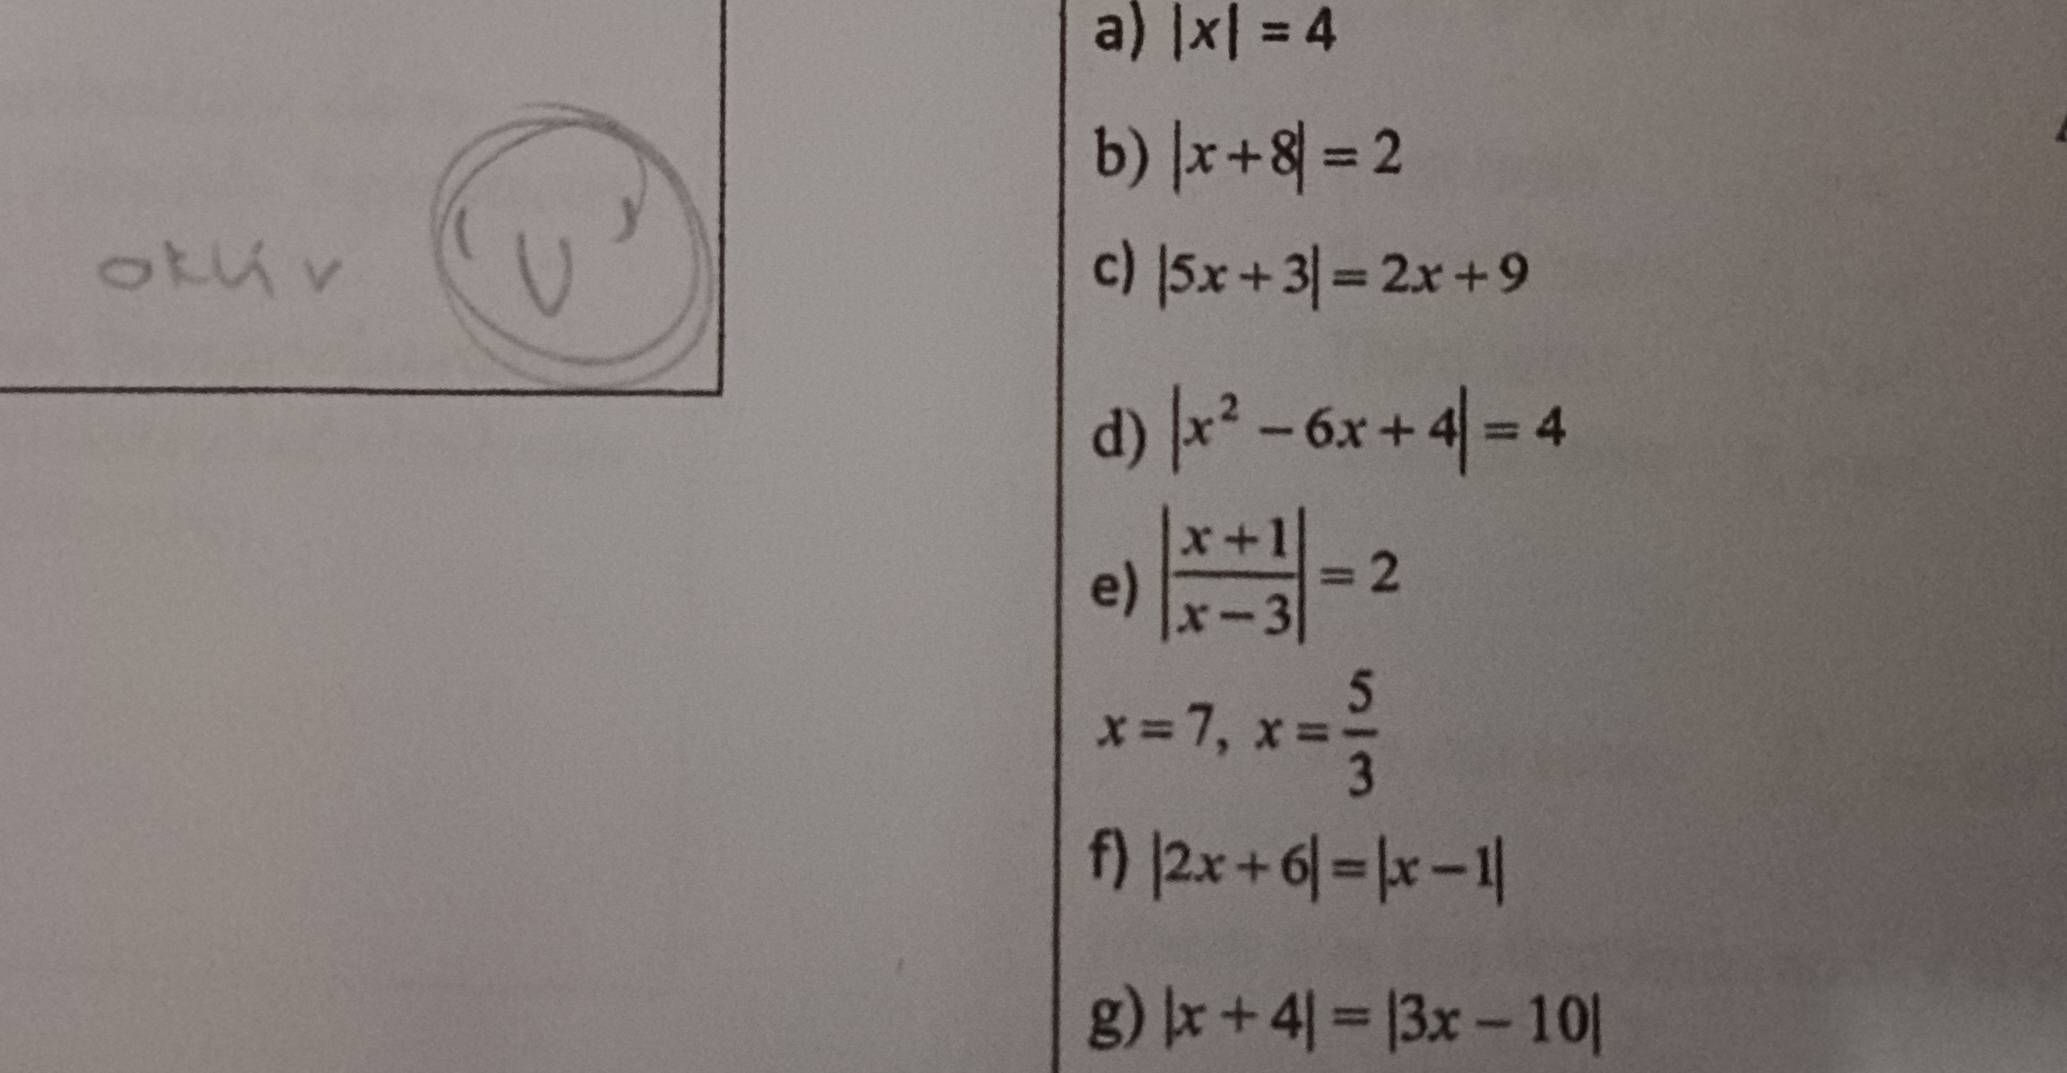 a) |x| = 4
b) |x+8| = 2
c) |5x+3| = 2x+9
d) |x² − 6x + 4| = 4
e) |(x+1)/(x−3)| = 2
x = 7, x = 5/3
f) |2x+6| = |x−1|
g) |x + 4| = |3x − 10|